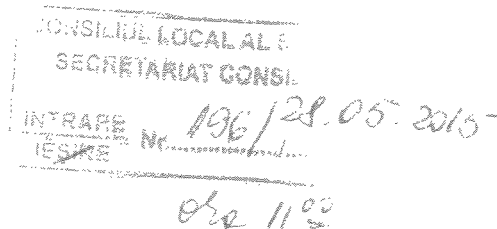 CONSILIUL LOCAL AL
SECRETARIAT CONSIL
INTRARE
IEȘIRE Nr. 196/28.05.2015
Ora 11 00